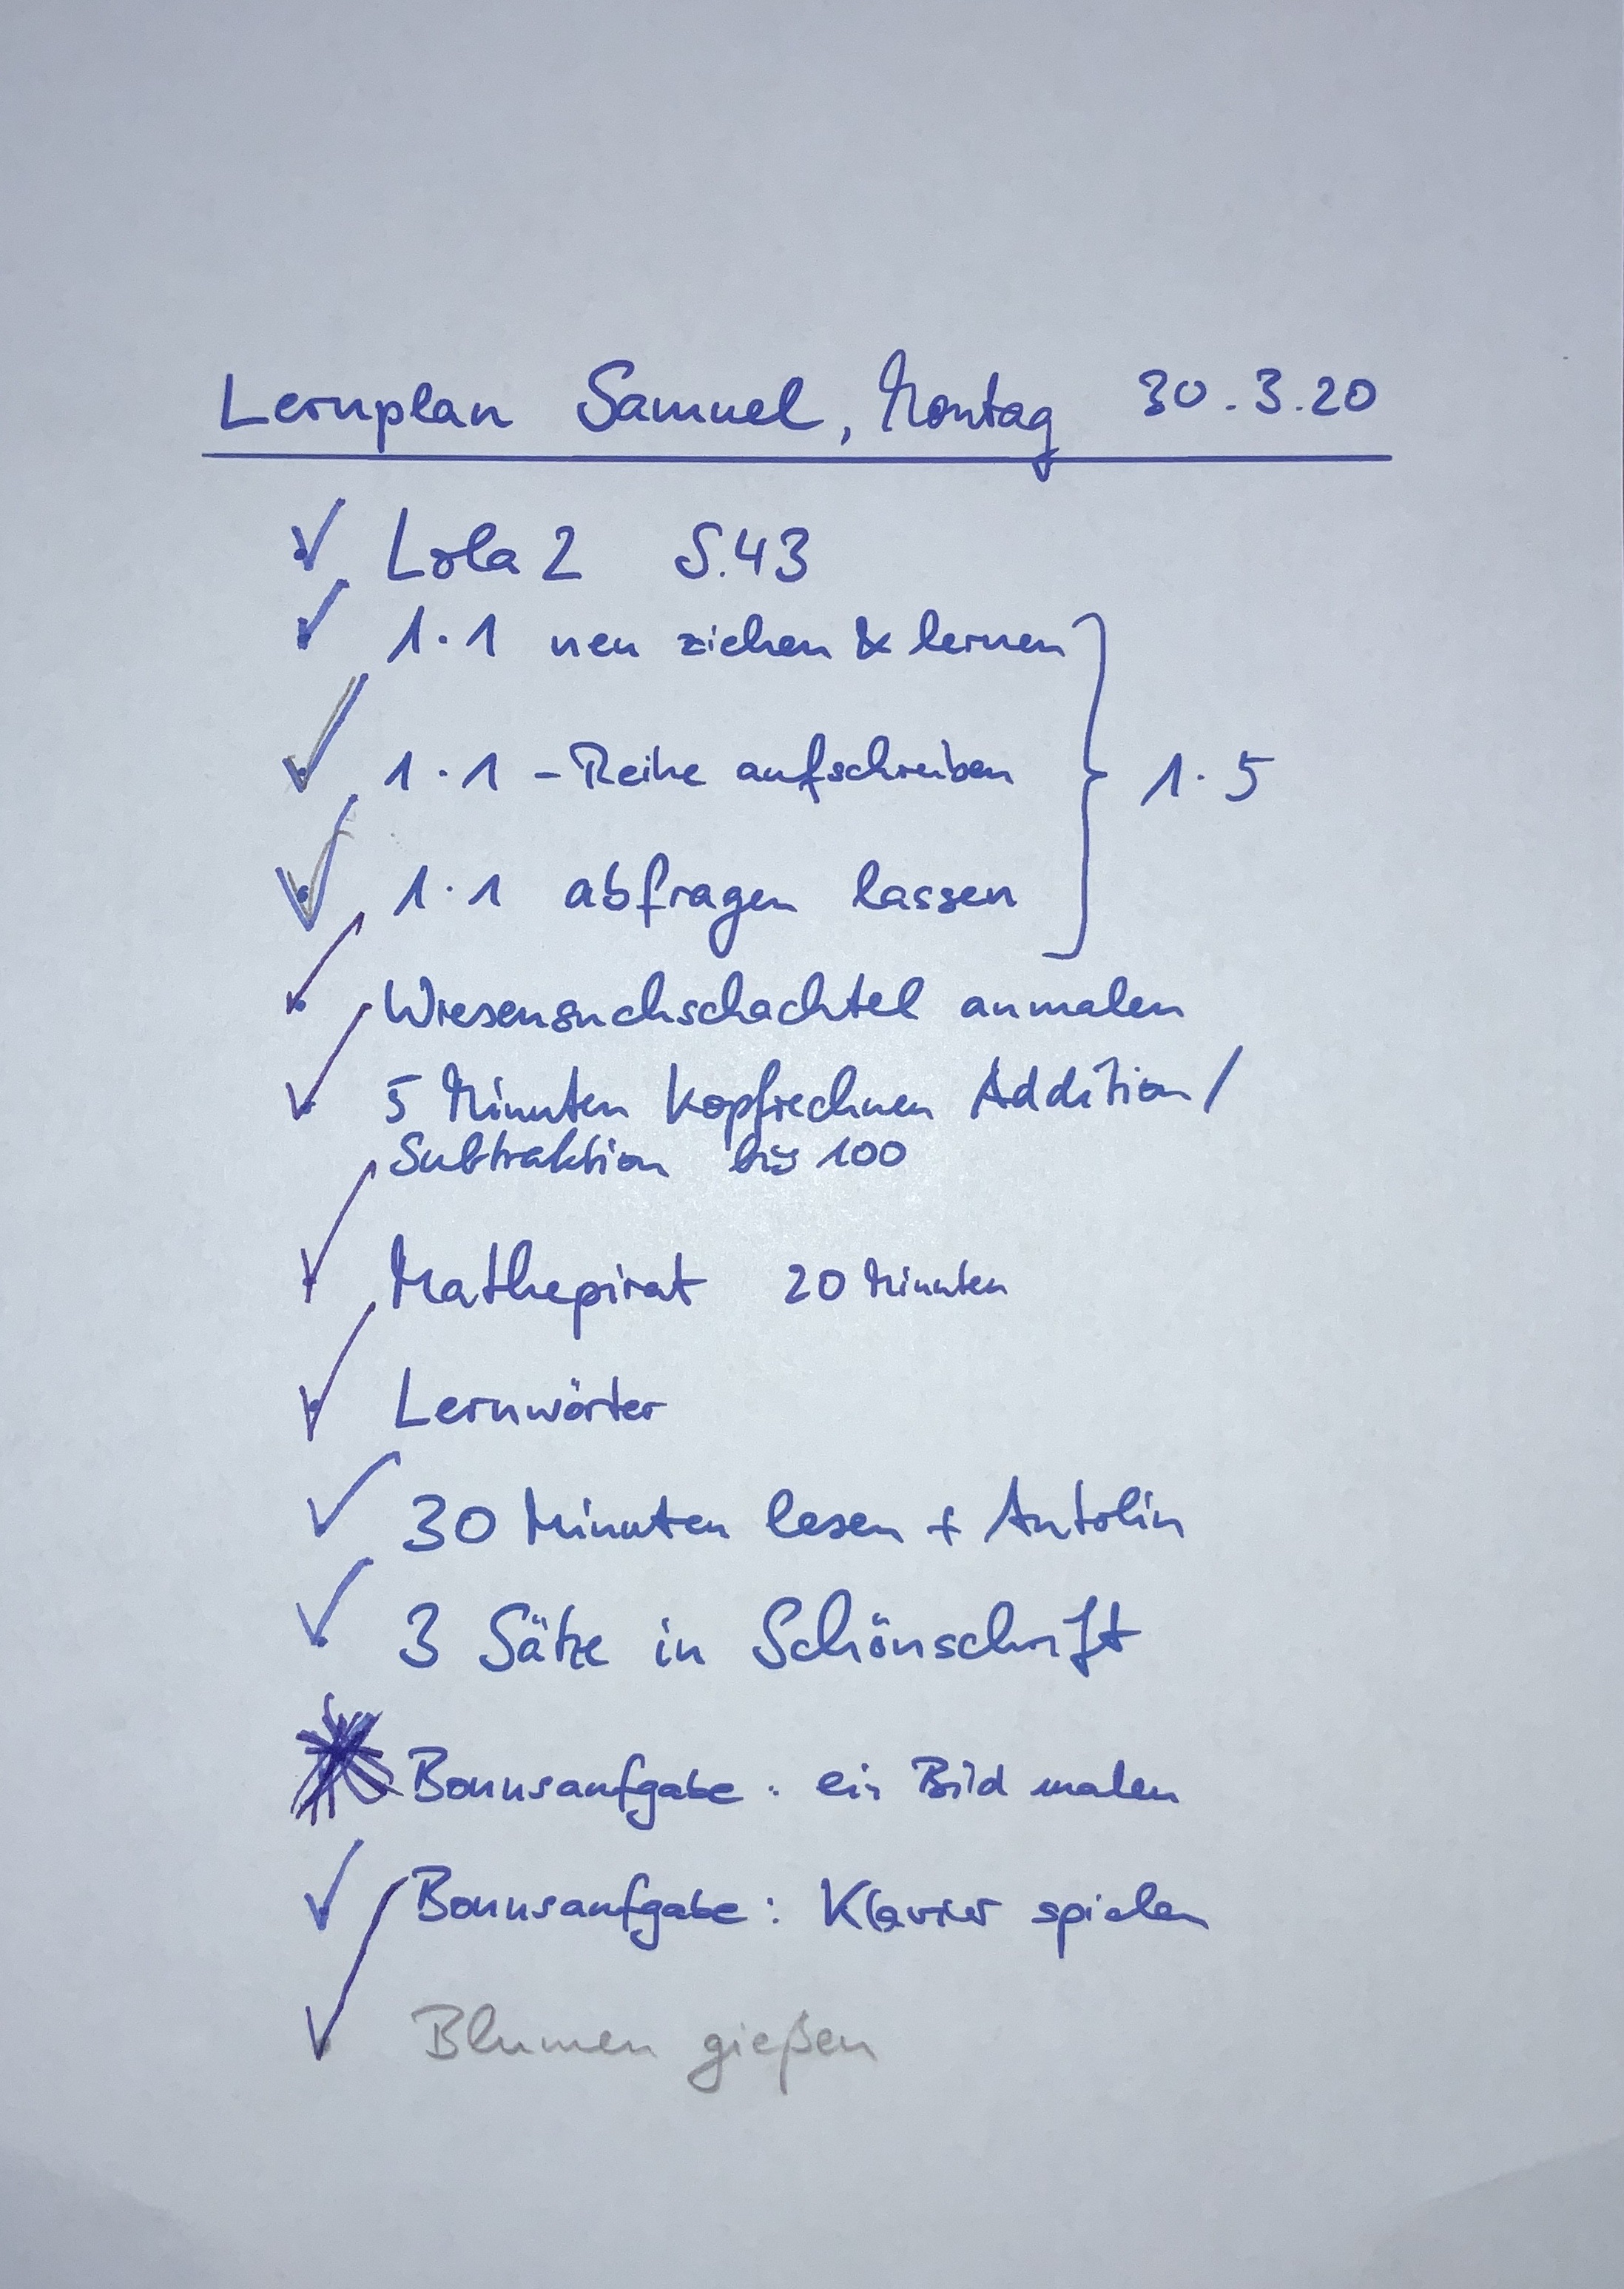 Lernplan Samuel, Montag 30.3.20
✓ Lola 2 S.43
✓ 1·1 neu ziehen & lernen
✓ 1·1-Reihe aufschreiben } 1·5
✓ 1·1 abfragen lassen
✓ anmalen
✓ 5 Minuten Kopfrechnen Addition/
Subtraktion bis 100
✓ Mathepirat 20 Minuten
✓ Lernwörter
✓ 30 Minuten lesen + Antolin
✓ 3 Sätze in Schönschrift
Bonusaufgabe: ein Bild malen
✓ Bonusaufgabe: Klavier spielen
✓ Blumen gießen